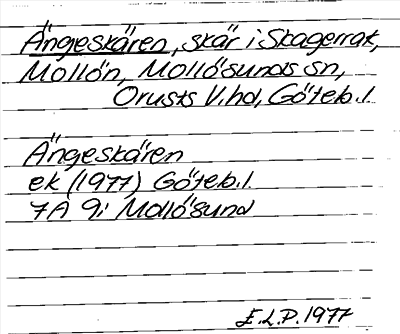 Ängeskären, skär i Skagerrak,
Mollön, Mollösunds sn,
Orusts V.hd, Göteb.l.
Ängeskären
ek (1977) Göteb.l.
7A 9i Mollösund
E.L.P. 1977